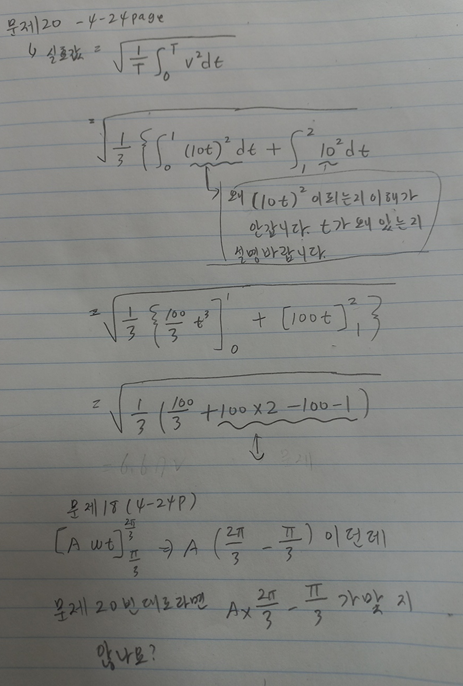 문제20 - 4-24page
↳ 실효값 = √(1/T ∫₀ᵀ v²dt)
= √(1/3 {∫₀¹ (10t)² dt + ∫₁² 10² dt
왜 (10t)² 이되는지 이해가
안갑니다. t가 왜 있는지
설명바랍니다.
= √(1/3 {100/3 t³]₀¹ + [100t]₁²}
= √(1/3 (100/3 + 100×2 - 100-1))
문제 18 (4-24P)
[A wt]_{π/3}^{2π/3} ⇒ A (2π/3 - π/3) 이던데
문제 20번 대로라면 A× 2π/3 - π/3 가 맞지
않나요?